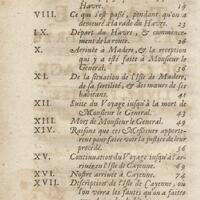 Havre. 19
VIII. Ce qui s'est passé, pendant qu'on a
demeuré à la rade du Havre. 23
IX. Départ du Havre, & commence-
ment de la route. 28
X. Arrivée à Madere, & la reception
qui y a esté faite à Monsieur le
General. 36
XI. De la situation de l'Isle de Madere,
de sa fertilité, & des mœurs de ses
habitans. 41
XII. Suite du Voyage jusqu'à la mort de
Monsieur le General. 43
XIII. Mort de Monsieur le General. 49
XIV. Raisons que ces Messieurs apporte-
rent pour faire voir la justice de leur
procedé.
XV. Continuation du Voyage jusqu'à l'ar-
rivée à Cayenne.
XVI. Nostre arrivée à Cayenne.
XVII. Description de l'Isle de Cayenne, où
l'on verra les fautes qu'on a faites